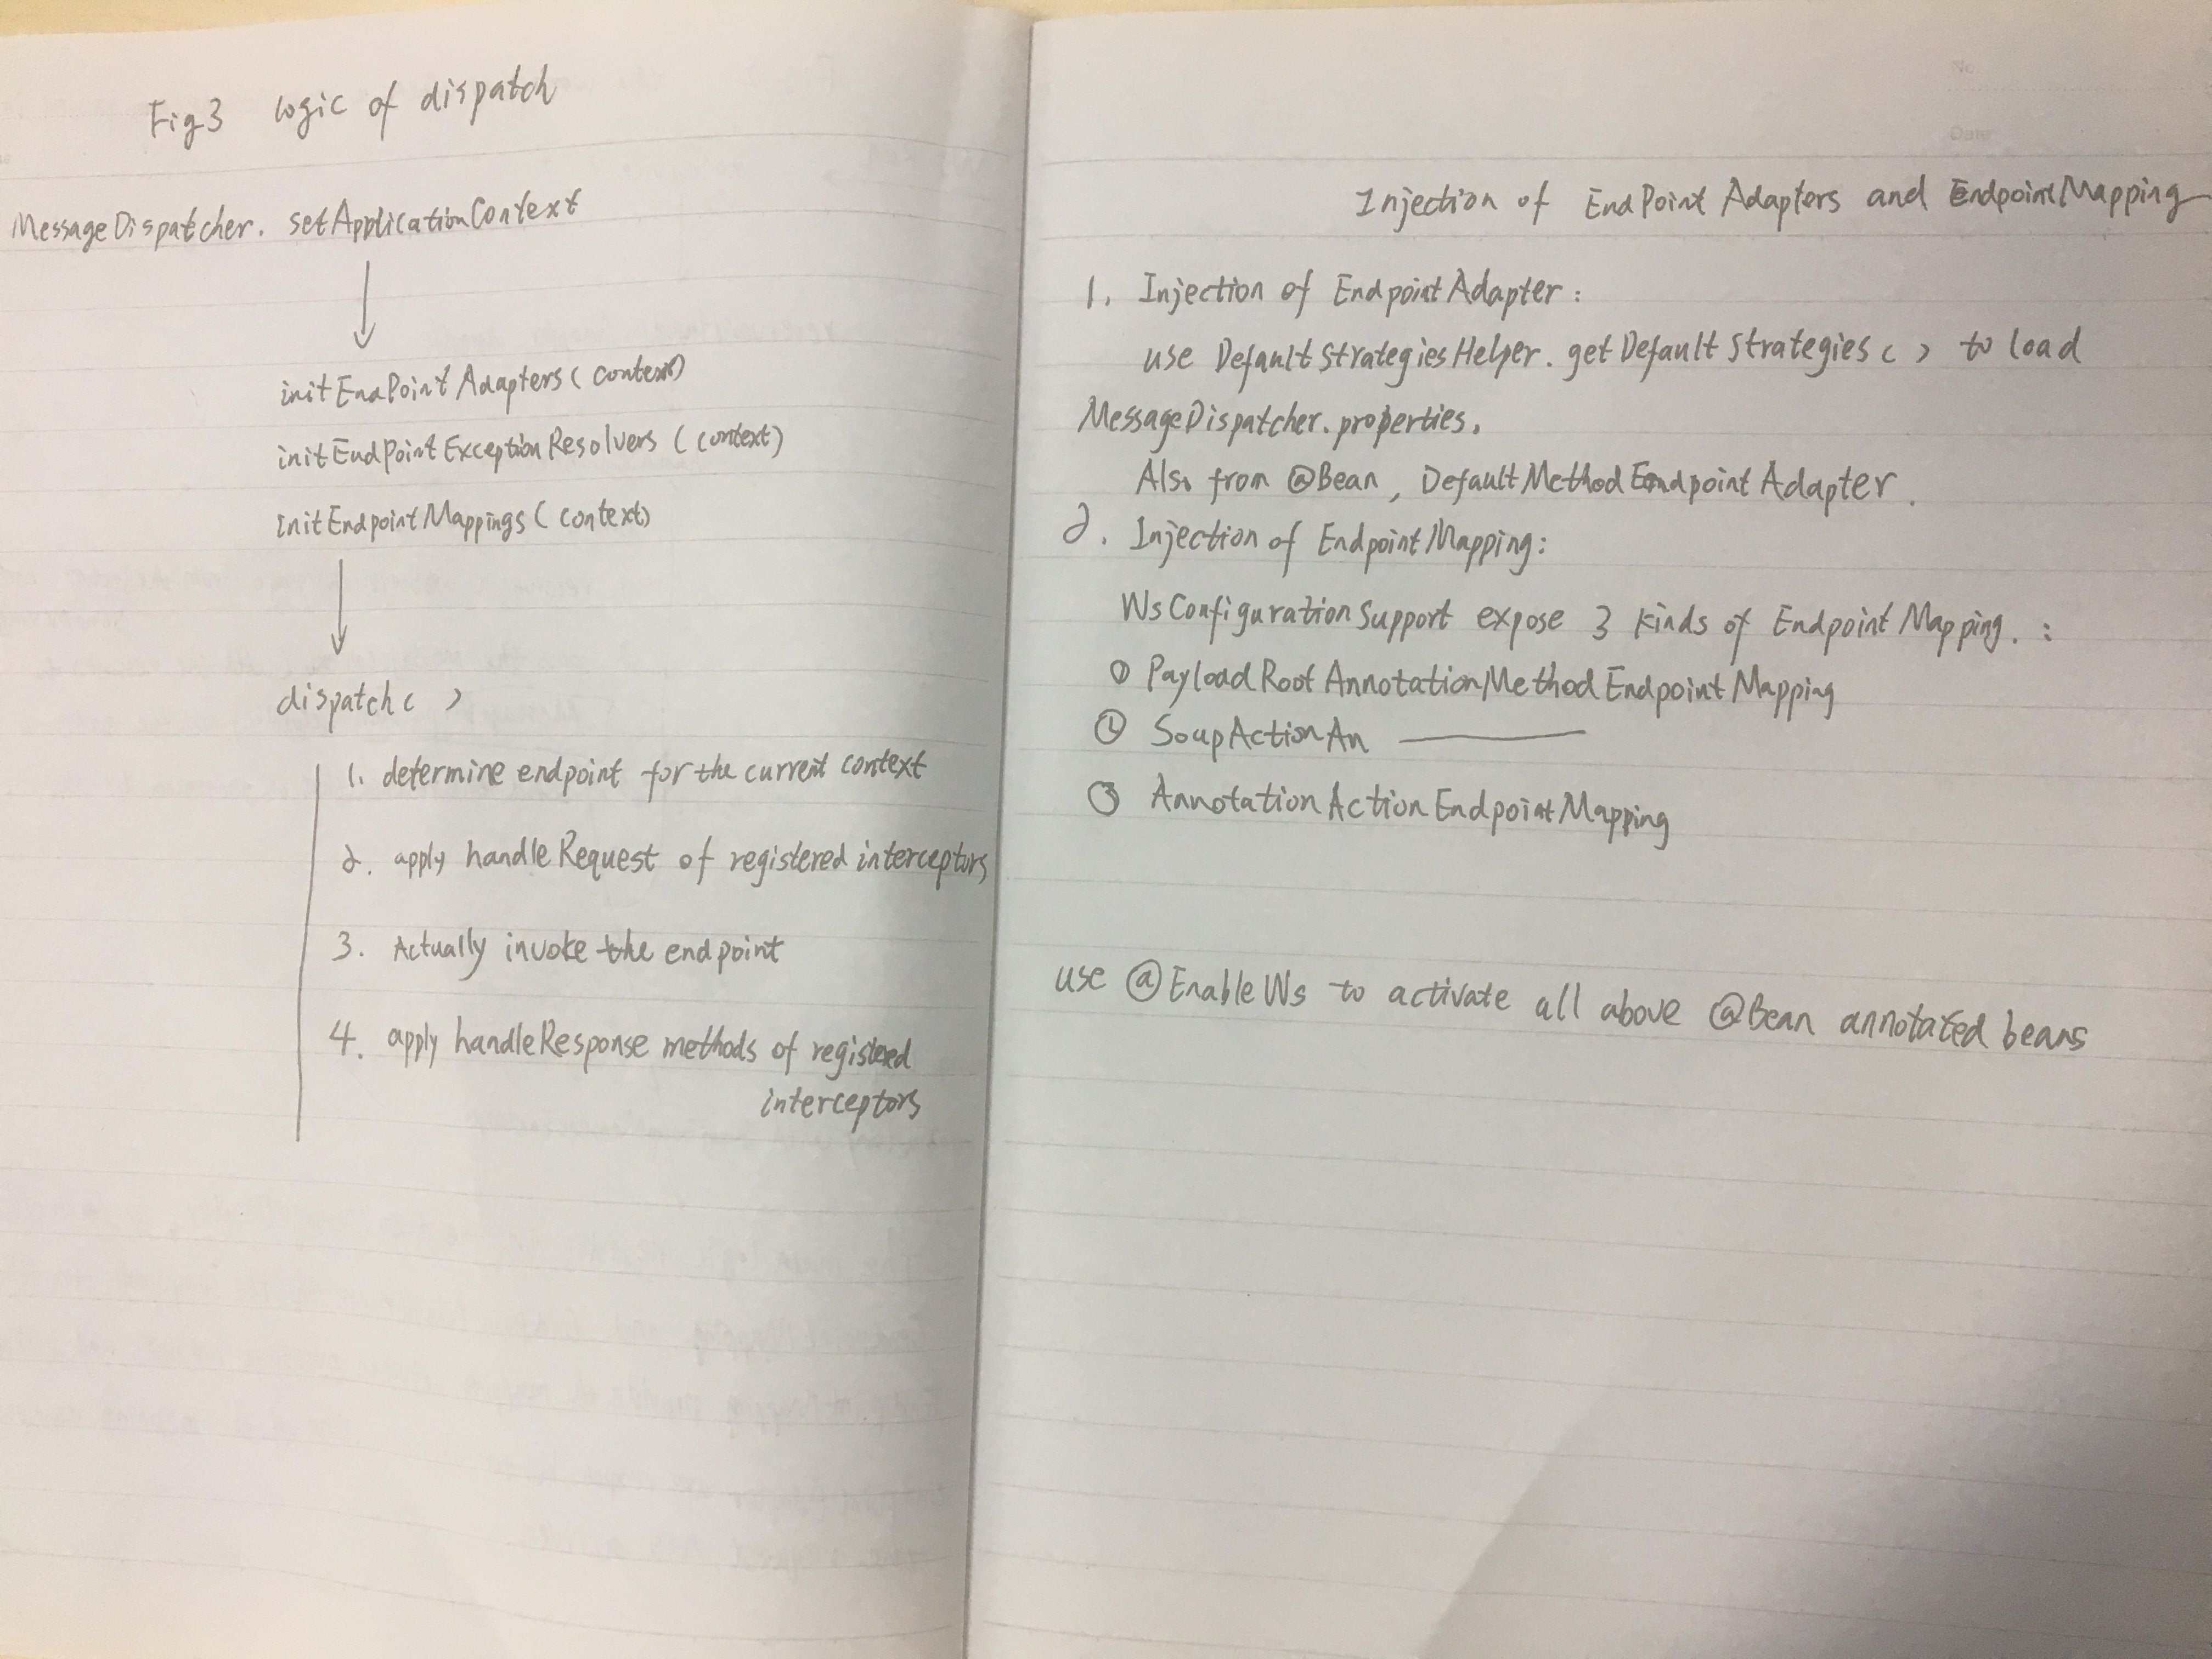 Fig3 logic of dispatch
MessageDispatcher. setApplicationContext
initEndPointAdapters (context)
initEndPointExceptionResolvers (context)
initEndpointMappings (context)
dispatch ( )
1. determine endpoint for the current context
2. apply handleRequest of registered interceptors
3. Actually invoke the endpoint
4. apply handleResponse methods of registered
interceptors
No.
Date
Injection of EndPoint Adapters and EndpointMapping
1. Injection of EndpointAdapter :
use DefaultStrategiesHelper. getDefaultStrategies ( ) to load
MessageDispatcher. properties.
Also from @Bean, DefaultMethodEndpointAdapter.
2. Injection of EndpointMapping:
WsConfigurationSupport expose 3 kinds of EndpointMapping. :
① PayloadRootAnnotationMethodEndpointMapping
② SoupActionAn ———
③ AnnotationActionEndpointMapping
use @EnableWs to activate all above @Bean annotated beans